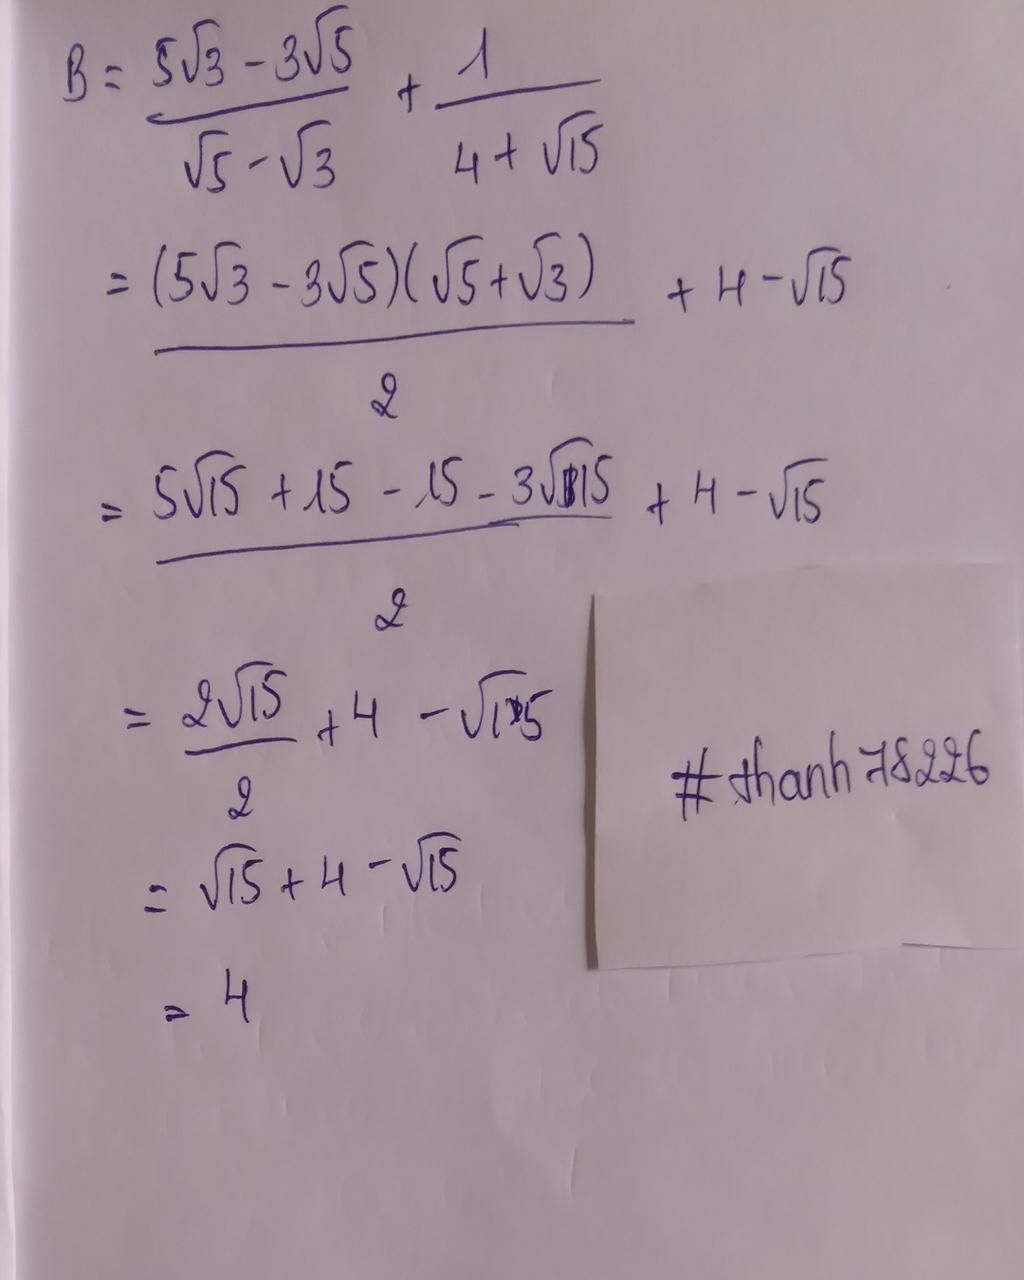 B = (5√3 - 3√5)/(√5 - √3) + 1/(4 + √15)
= (5√3 - 3√5)(√5 + √3)/2 + 4 - √15
= (5√15 + 15 - 15 - 3√15)/2 + 4 - √15
= 2√15/2 + 4 - √15
= √15 + 4 - √15
= 4
#thanh78226